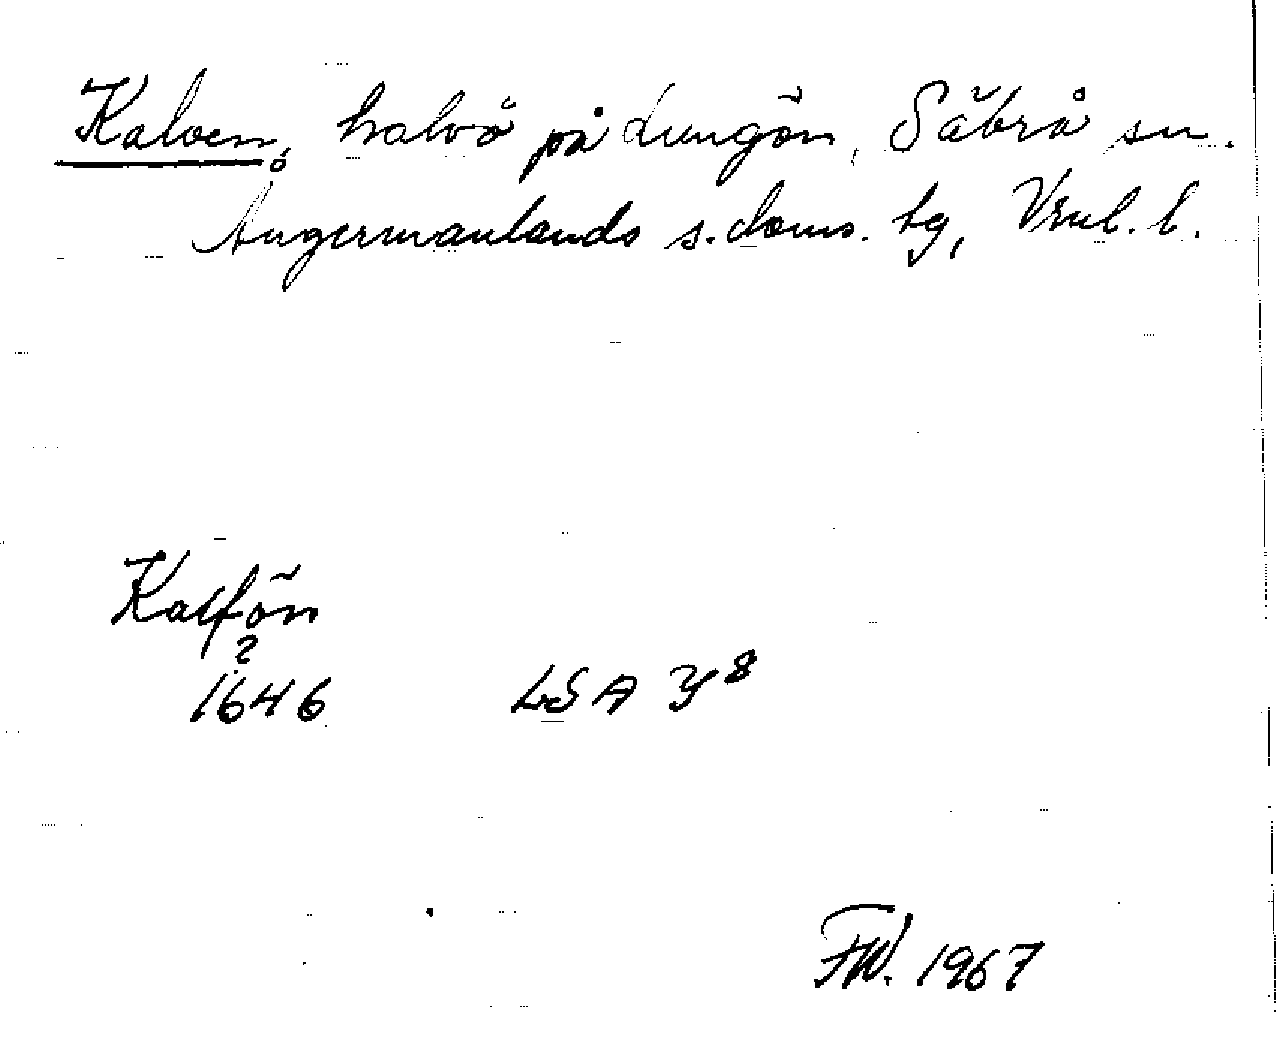 Kalven, halvö på Lungön, Säbrå sn.
Ångermanlands s. doms. tg, Vnl. l.
Kalfön
?
1646 LSA Y 8
FW. 1967